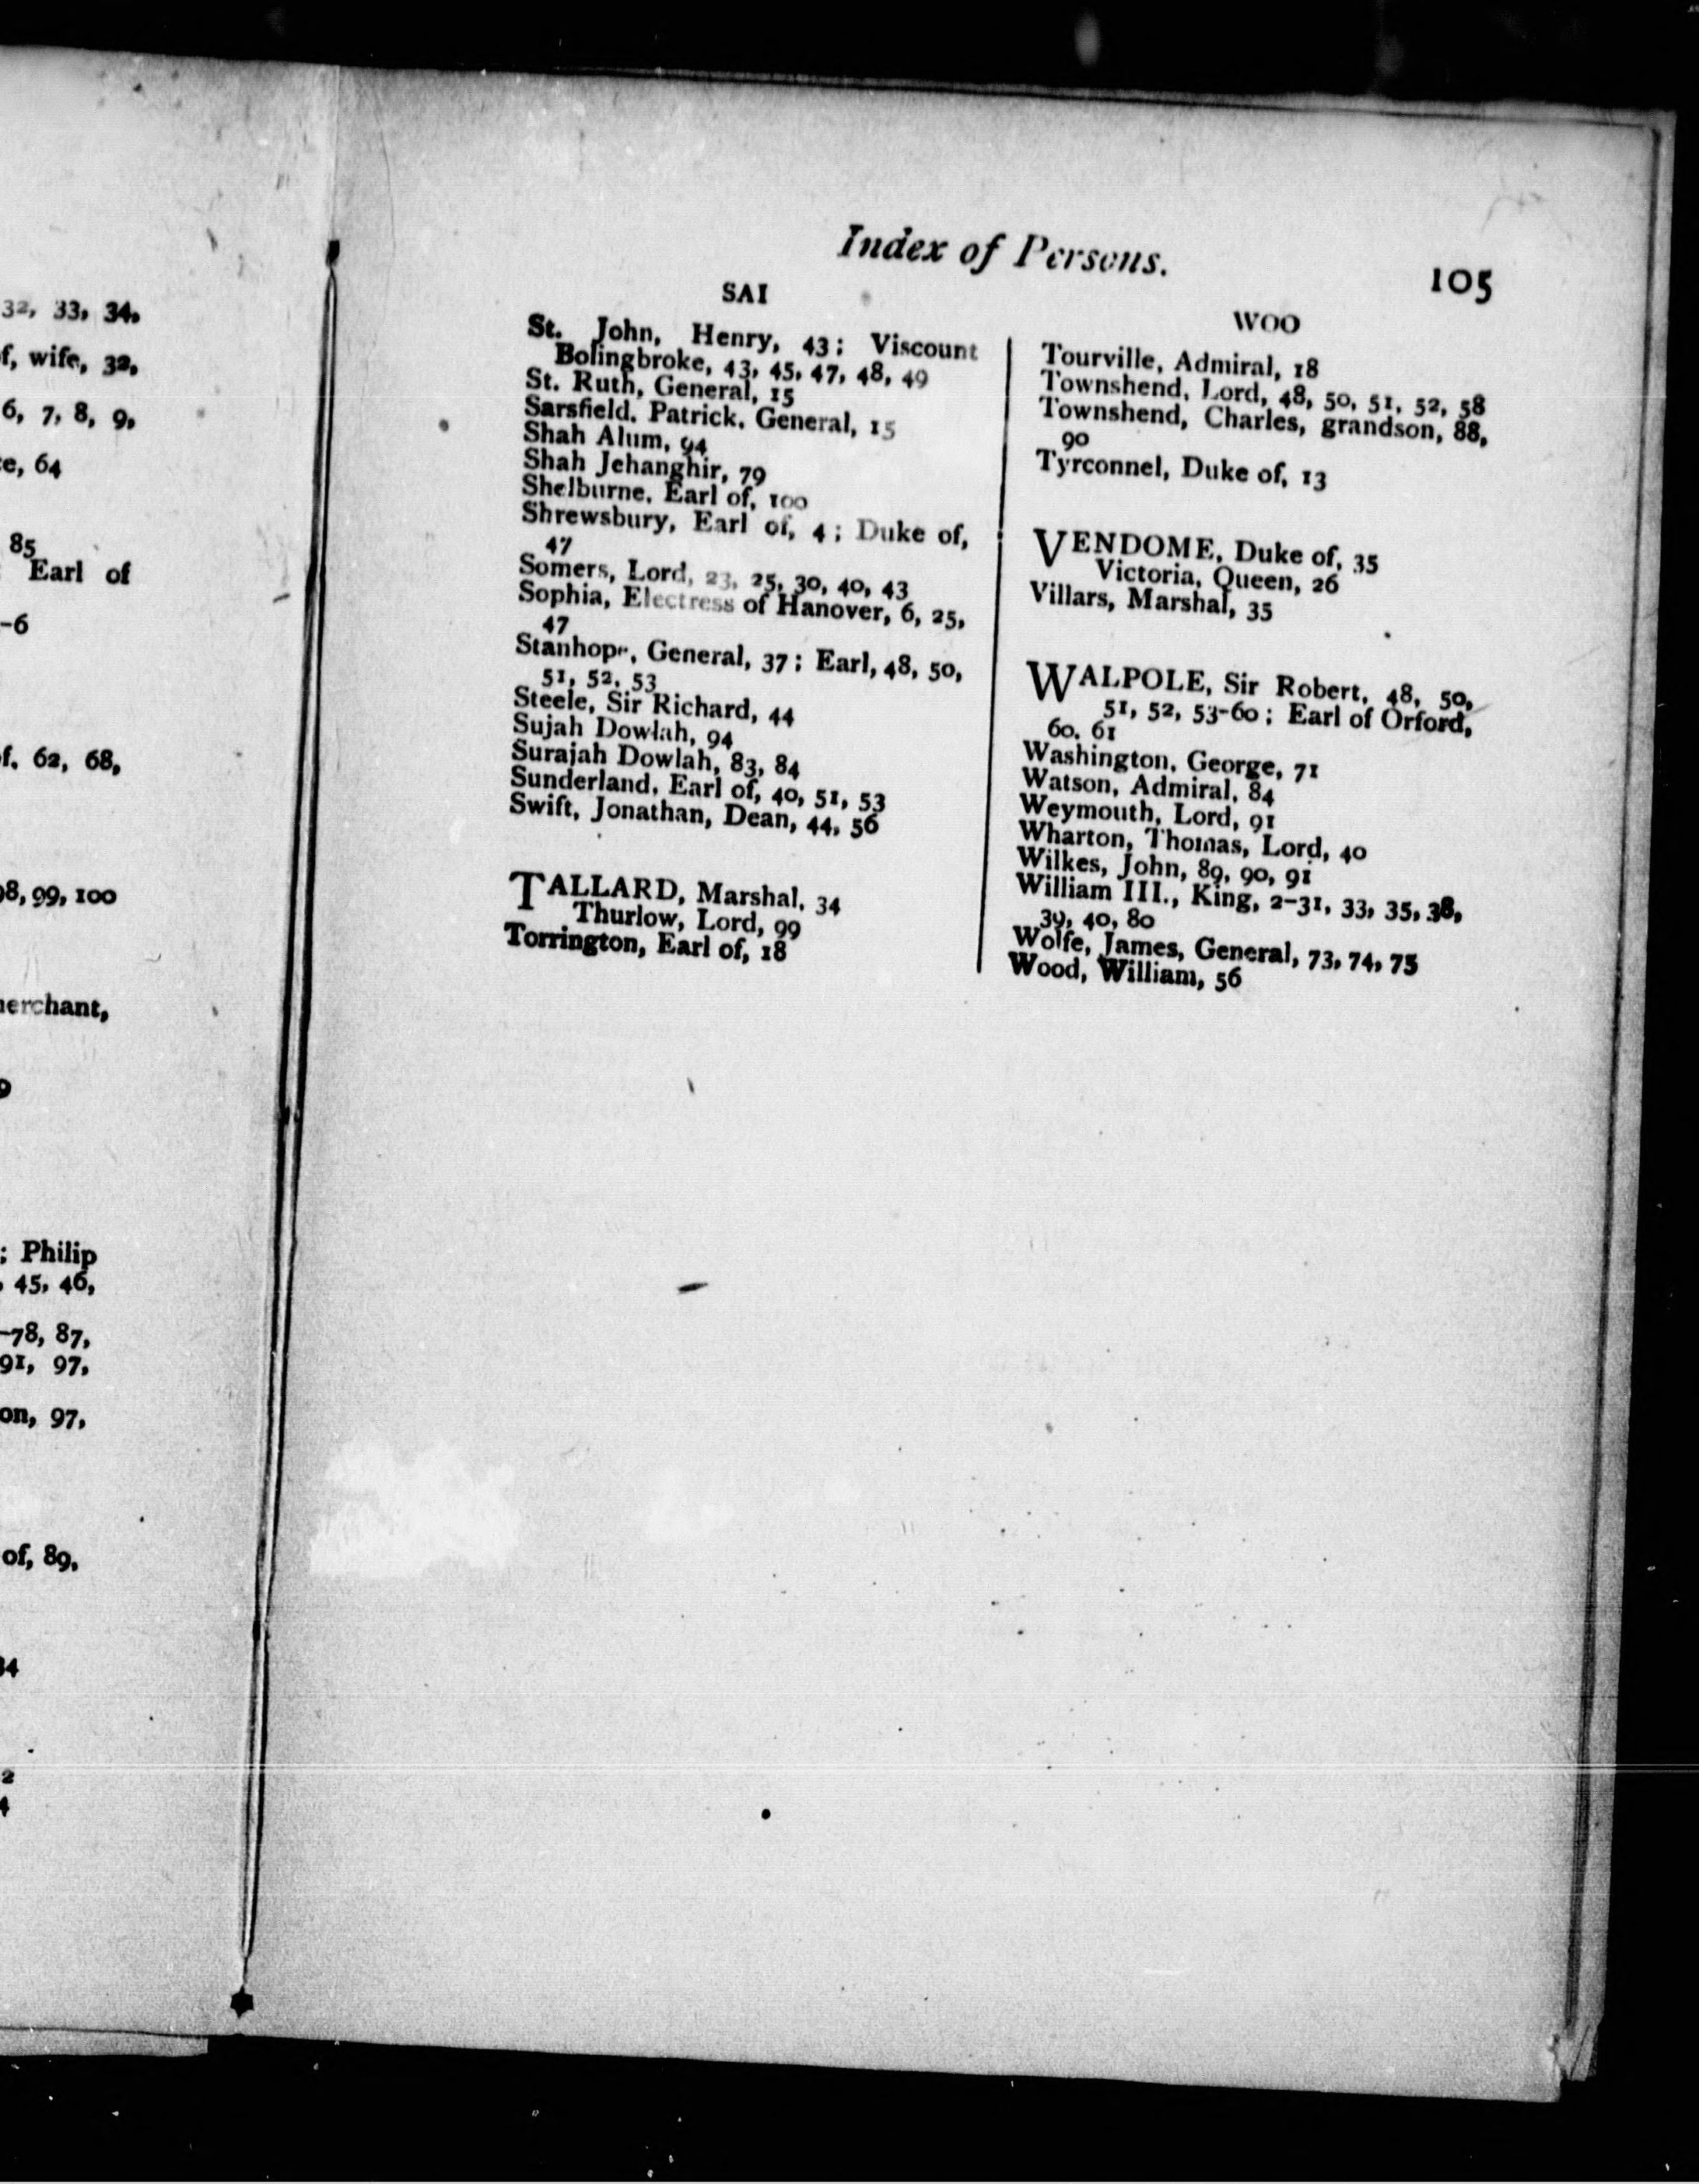 32, 33, 34,
f, wife, 32,
6, 7, 8, 9,
e, 64
85
Earl of
-6
f. 62, 68,
98, 99, 100
merchant,
9
; Philip
, 45, 46,
-78, 87,
91, 97,
on, 97,
of, 89,
34
2
4
Index of Persons.
105
SAI
St. John, Henry, 43; Viscount
Bolingbroke, 43, 45, 47, 48, 49
St. Ruth, General, 15
Sarsfield, Patrick, General, 15
Shah Alum, 94
Shah Jehanghir, 79
Shelburne, Earl of, 100
Shrewsbury, Earl of, 4; Duke of,
47
Somers, Lord, 23, 25, 30, 40, 43
Sophia, Electress of Hanover, 6, 25,
47
Stanhope, General, 37; Earl, 48, 50,
51, 52, 53
Steele, Sir Richard, 44
Sujah Dowlah, 94
Surajah Dowlah, 83, 84
Sunderland, Earl of, 40, 51, 53
Swift, Jonathan, Dean, 44, 56
TALLARD, Marshal, 34
Thurlow, Lord, 99
Torrington, Earl of, 18
WOO
Tourville, Admiral, 18
Townshend, Lord, 48, 50, 51, 52, 58
Townshend, Charles, grandson, 88,
90
Tyrconnel, Duke of, 13
VENDOME, Duke of, 35
Victoria, Queen, 26
Villars, Marshal, 35
WALPOLE, Sir Robert, 48, 50,
51, 52, 53-60; Earl of Orford,
60, 61
Washington, George, 71
Watson, Admiral, 84
Weymouth, Lord, 91
Wharton, Thomas, Lord, 40
Wilkes, John, 89, 90, 91
William III., King, 2-31, 33, 35, 38,
39, 40, 80
Wolfe, James, General, 73, 74, 75
Wood, William, 56